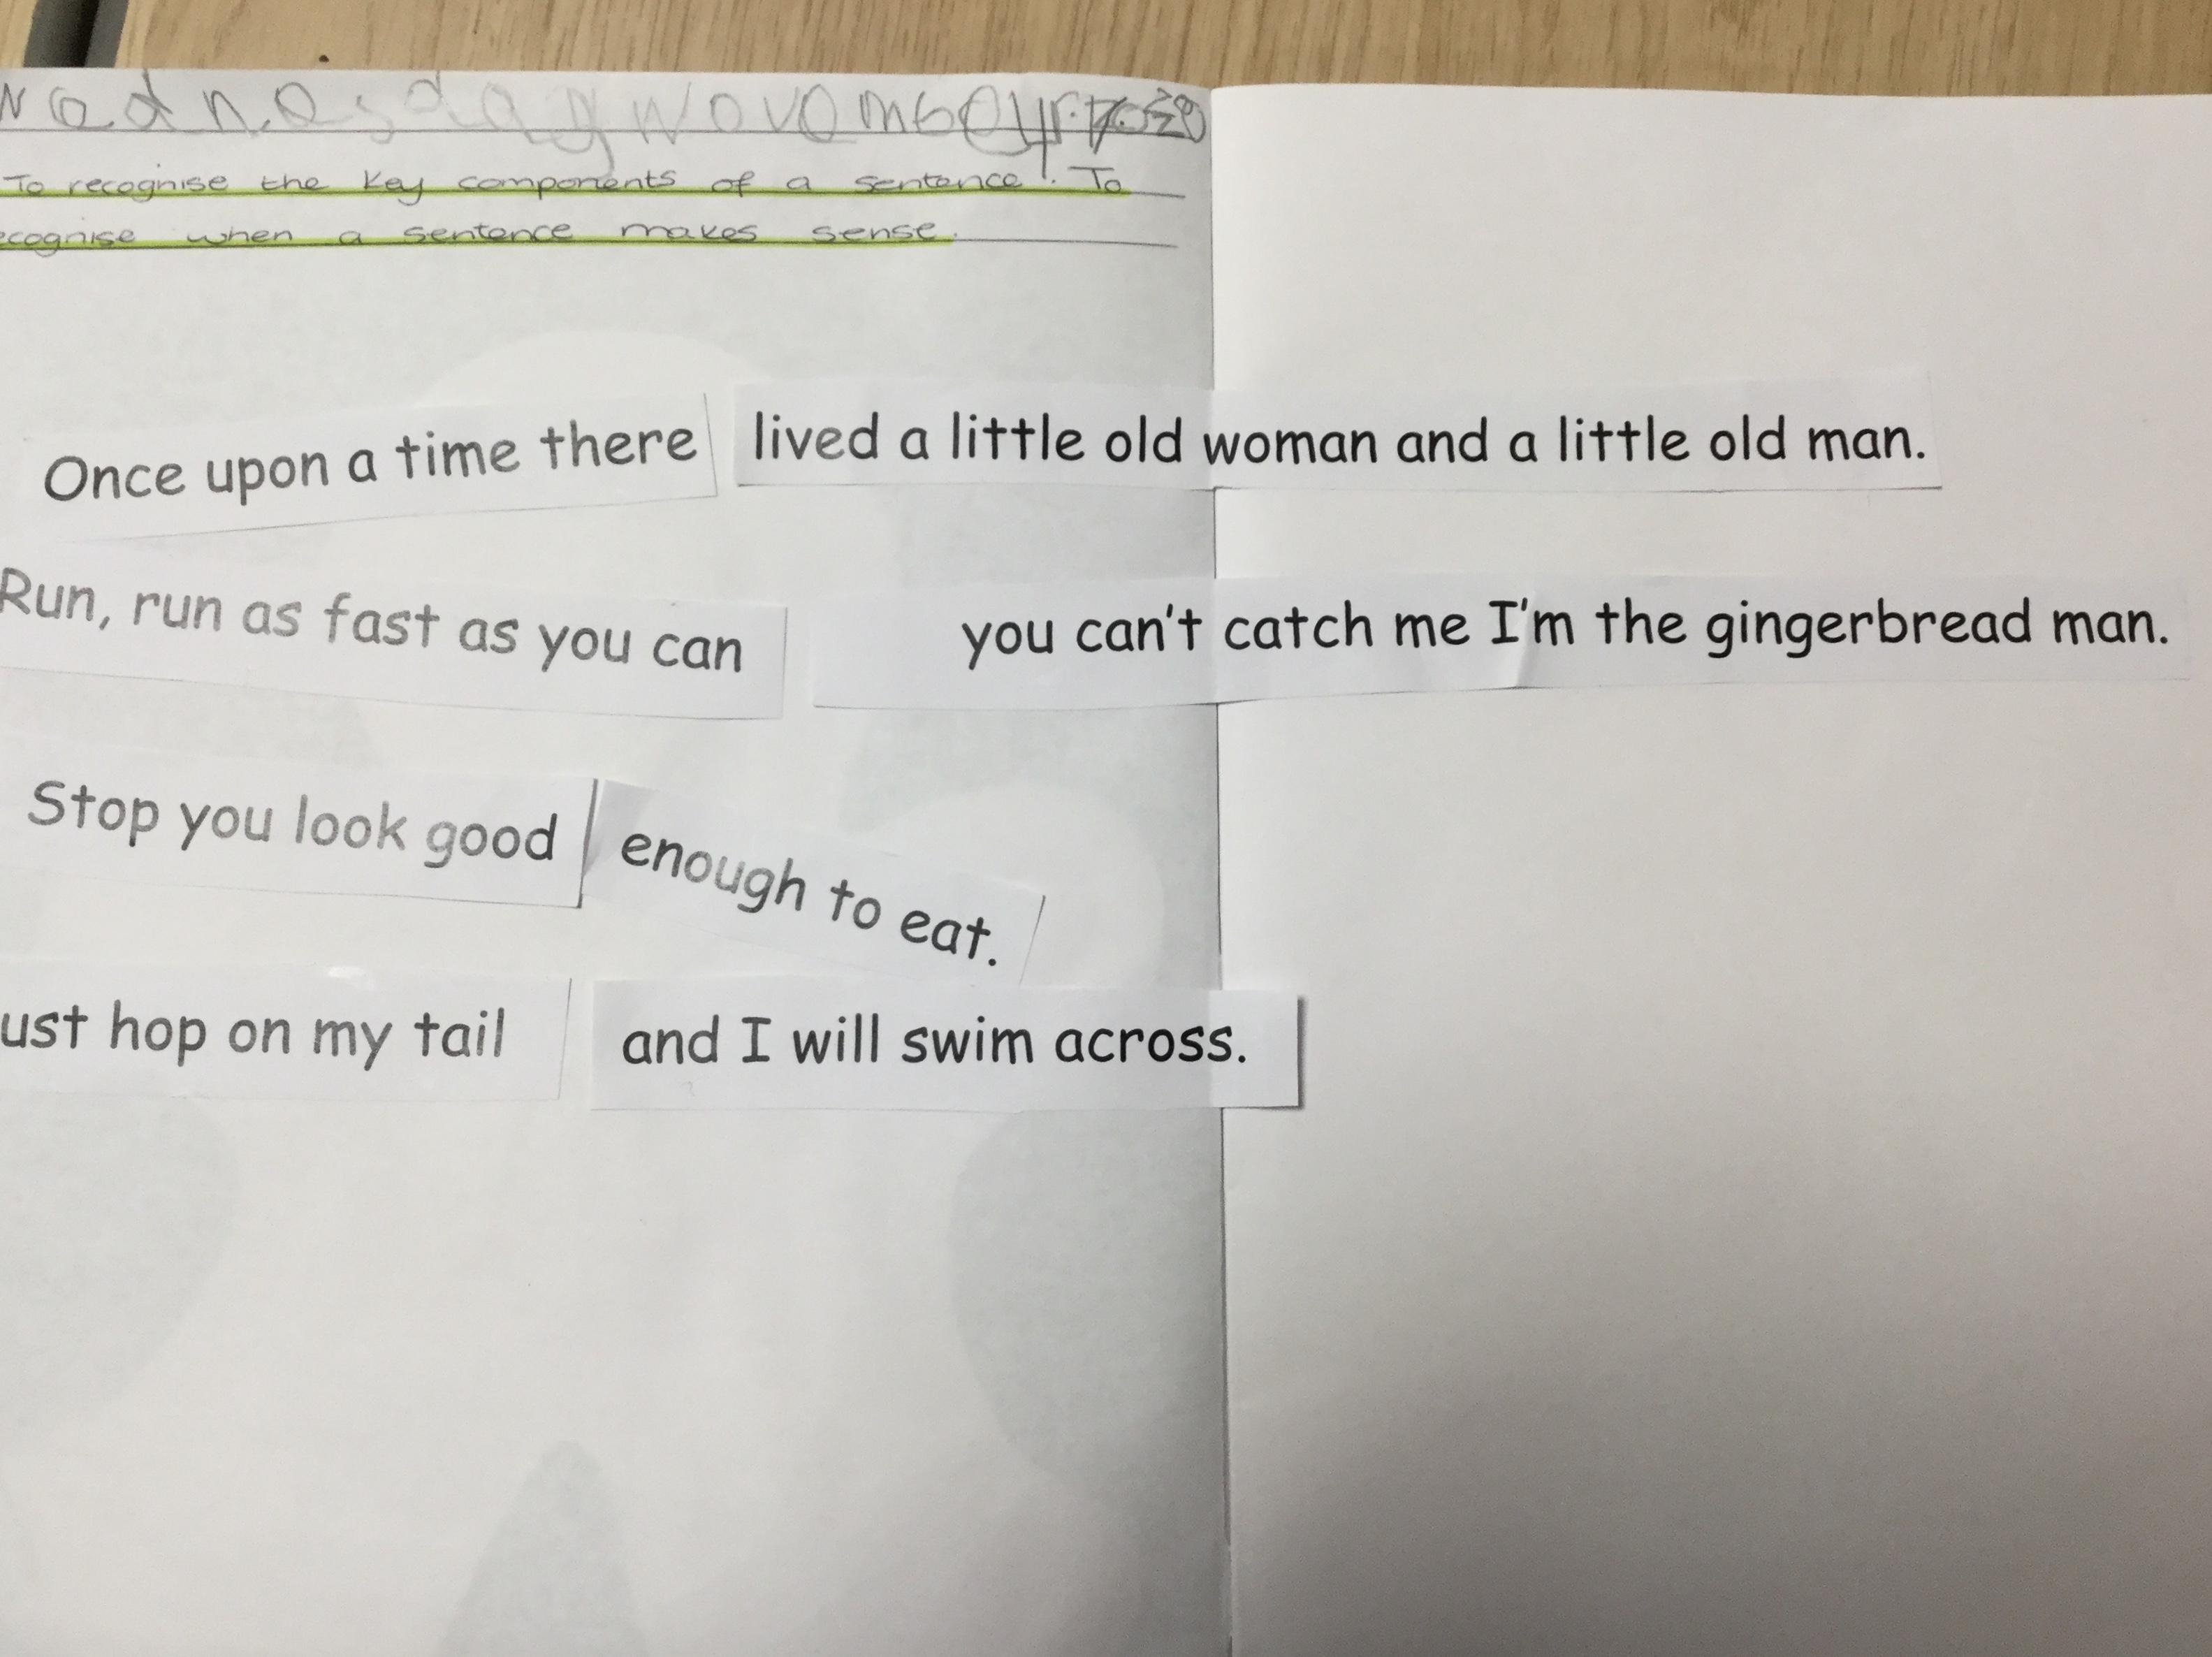 Wednesday November
To recognise the key components of a sentence. To
ecognise when a sentence makes sense.
Once upon a time there lived a little old woman and a little old man.
Run, run as fast as you can you can't catch me I'm the gingerbread man.
Stop you look good enough to eat.
ust hop on my tail and I will swim across.